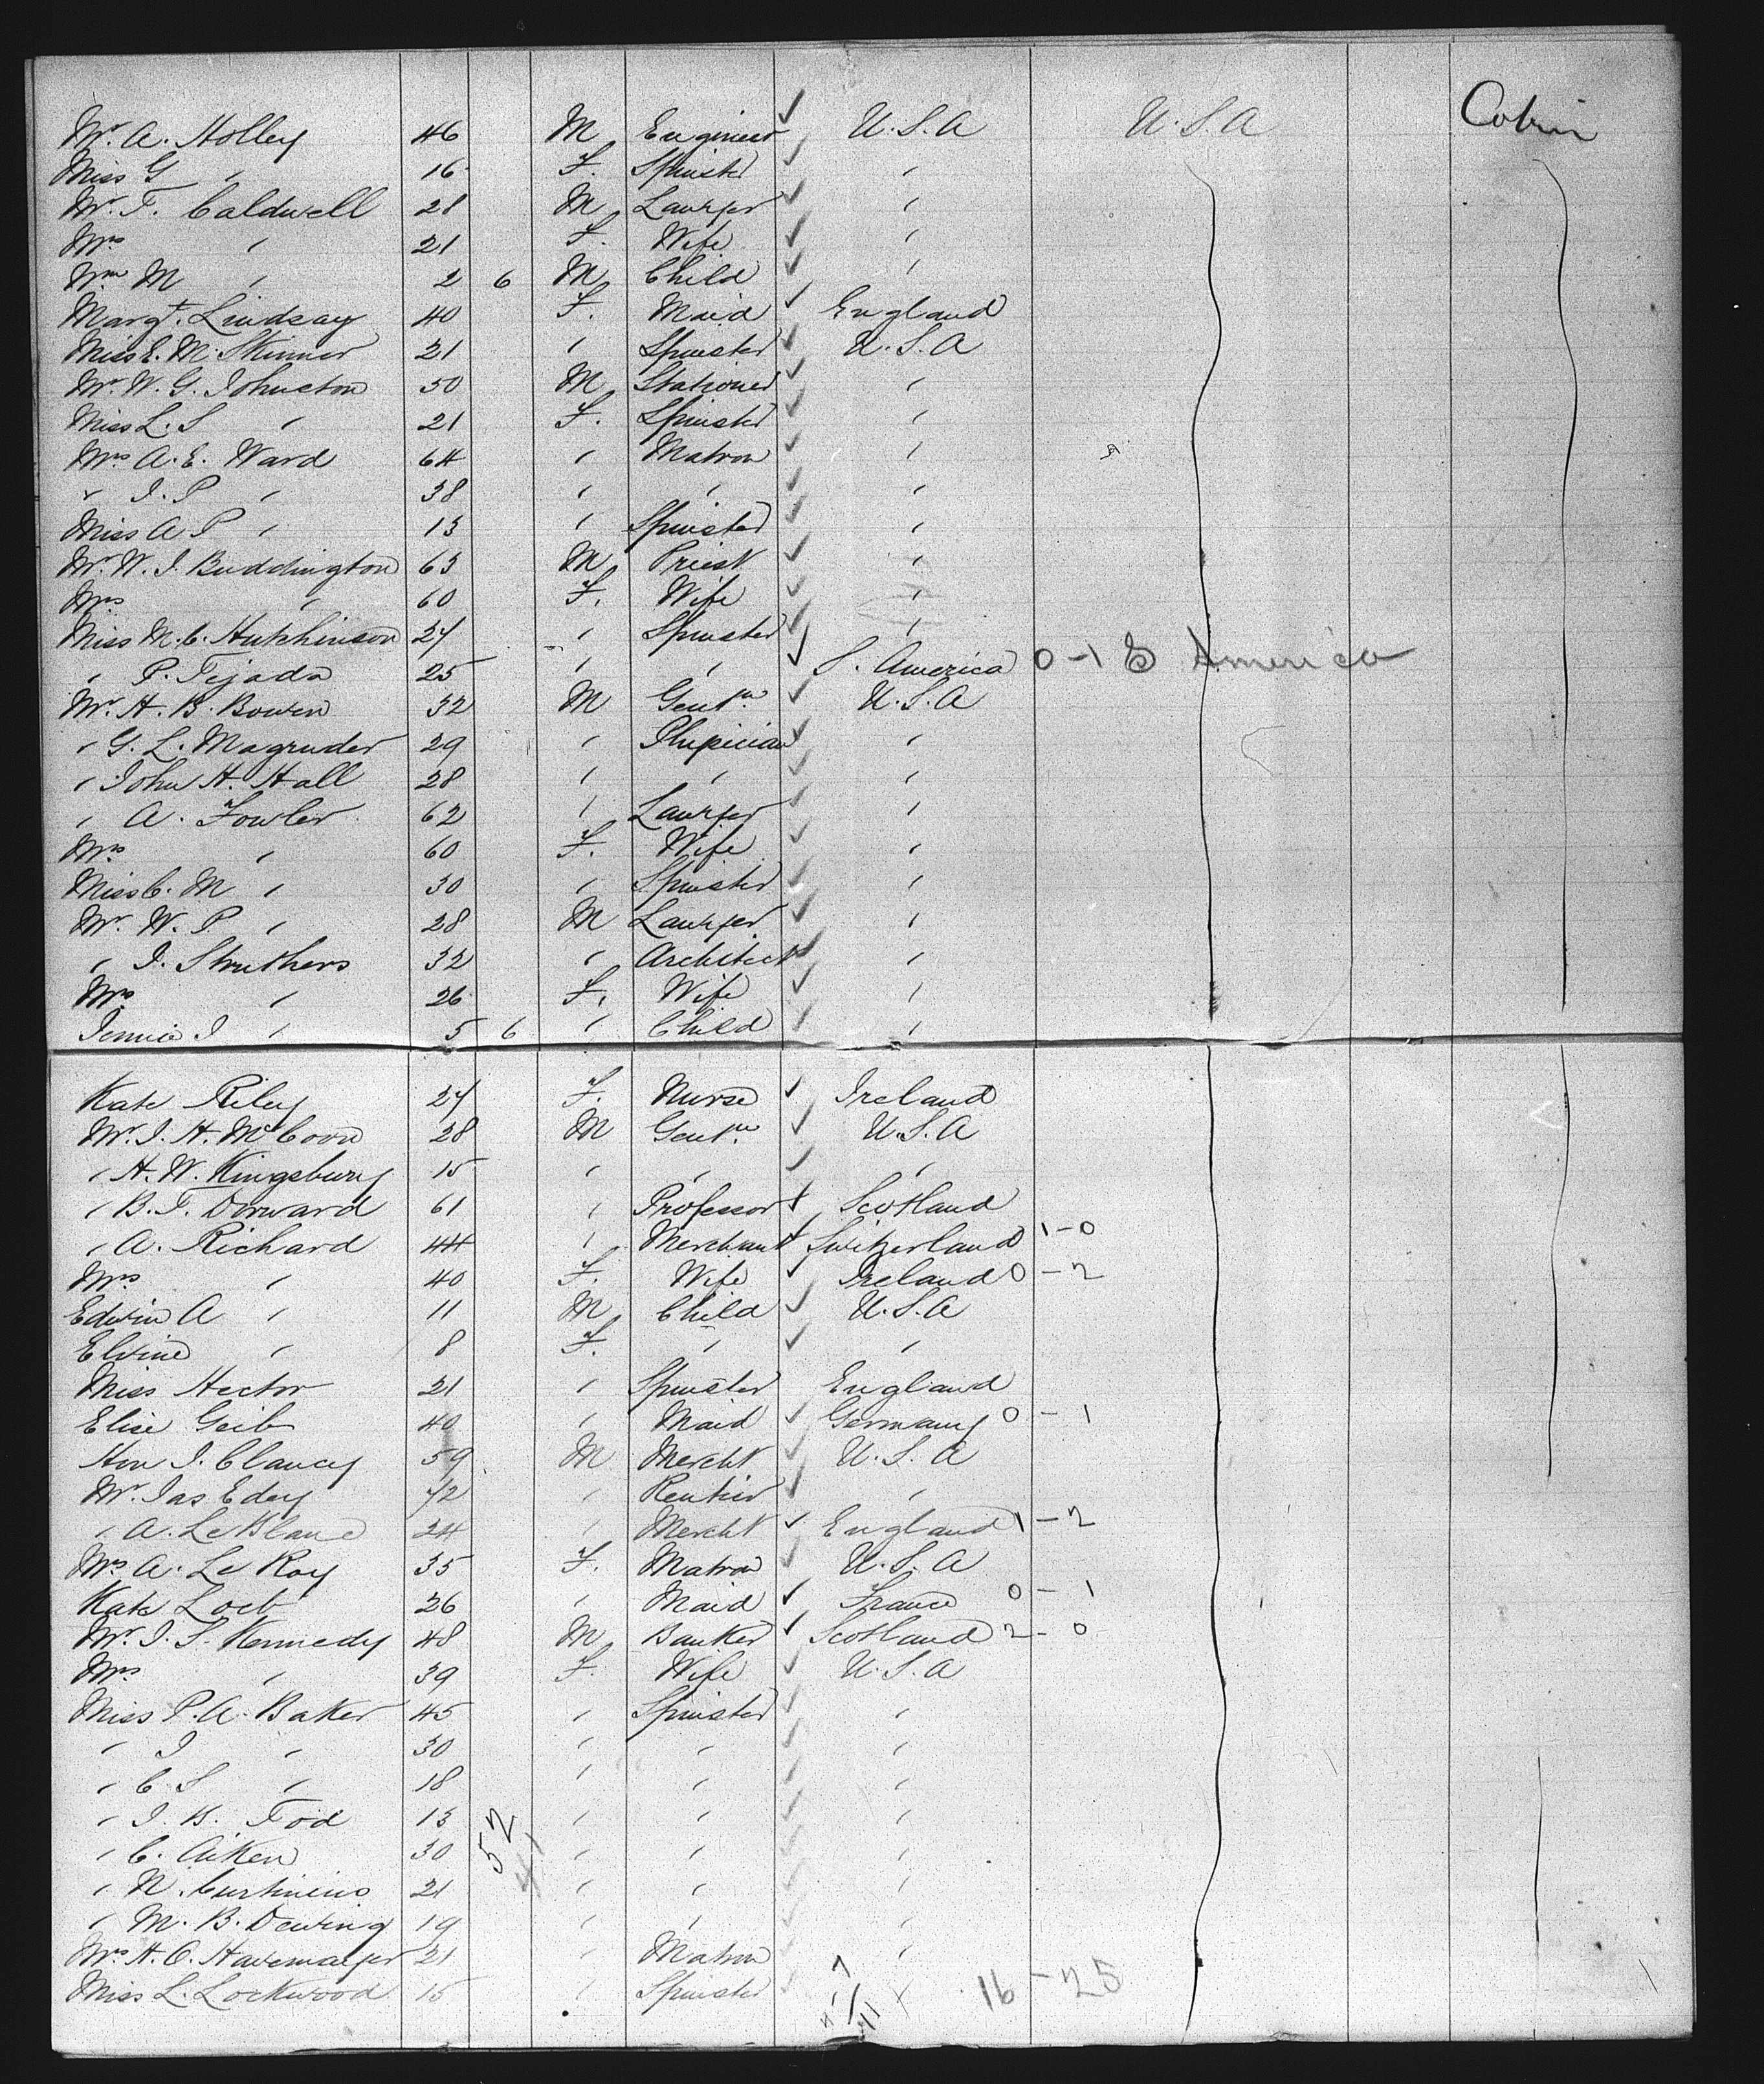 Mr. A. Holley 46 M Engineer U.S.A U.S.A Cabin
Miss G " 16 F. Spinster "
Mr. T. Caldwell 28 M Lawyer "
Mrs " 21 F. Wife "
Wm M " 2 6 M Child "
Margt. Lindsay 40 F. Maid England
Miss E. M. Skinner 21 " Spinster U.S.A
Mr. W. G. Johnston 50 M Stationer "
Miss L. S " 21 F. Spinster "
Mrs A. E. Ward 64 " Matron "
" J. P " 38 " " "
Miss A P " 13 " Spinster "
Mr. W. I. Buddington 63 M Priest "
Mrs " 60 F. Wife "
Miss M. C. Hutchinson 27 " Spinster "
" P. Tejada 25 " " S. America 0-1 S America
Mr. H. B. Bowen 32 M Gentn. U.S.A
" G. L. Magruder 29 " Physician "
" John H. Hall 28 " " "
" A. Fowler 62 " Lawyer "
Mrs " 60 F. Wife "
Miss C. M " 30 " Spinster "
Mr. W. P. " 28 M Lawyer "
" J. Struthers 32 " Architect "
Mrs " 26 F. Wife "
Jennie J " 5 6 " Child "
Kate Riley 27 F. Nurse Ireland
Mr. J. H. McCoon 28 M Gentn. U.S.A
" H. W. Kingsbury 15 " " "
" B. T. Dorward 61 " Professor Scotland
" A. Richard 44 " Merchant Switzerland 1-0
Mrs " 40 F. Wife Ireland 0-2
Edwin A " 11 M Child U.S.A
Elvine " 8 F. " "
Miss Hector 21 " Spinster England
Elise Geib 40 " Maid Germany 0-1
Hon J. Clancy 59 M Mercht U.S.A
Mr. Jas Edey 72 " Rentier "
" A. LeBlanc 24 " Mercht England 1-2
Mrs A. Le Roy 35 F. Matron U.S.A
Kate Loeb 26 " Maid France 0-1
Mr. J. S. Kennedy 48 M Banker Scotland 2-0
Mrs " 39 F. Wife U.S.A
Miss P. A. Baker 45 " Spinster "
" J " 30 " " "
" C S " 18 " " "
" J. B. Tod 13 " " "
" C. Aiken 30 52 41 " " "
" N. 21 " " "
" M. B. Dewing 19 " " "
Mrs H. O. Havemeyer 21 " Matron "
Miss L. Lockwood 15 " Spinster 16-25